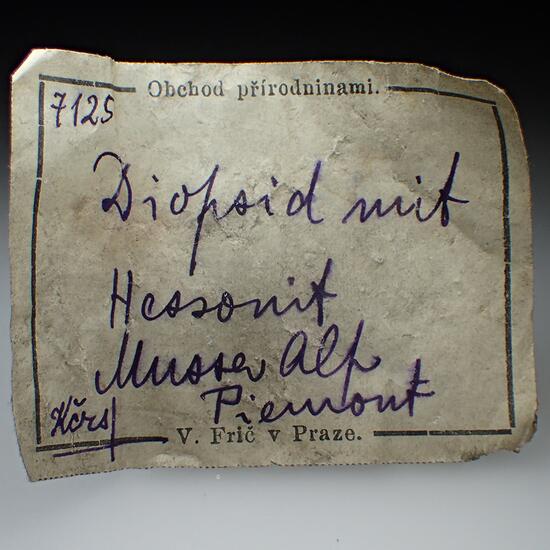 Obchod přírodninami.
7125
Diopsid mit
Hessonit
Mussa Alp
Piemont
Kčrs
V. Frič v Praze.